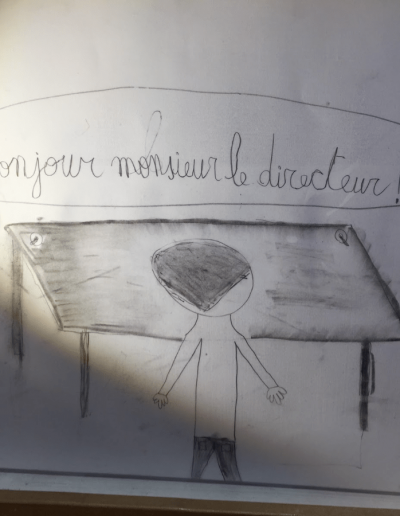 onjour monsieur le directeur !